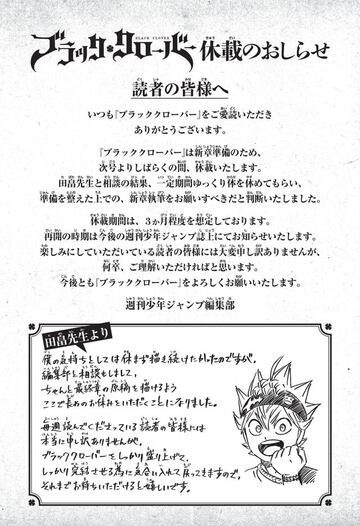 BLACK CLOVER
ブラッククローバー休載のおしらせ
読者の皆様へ
いつも『ブラッククローバー』をご愛読いただき
ありがとうございます。
『ブラッククローバー』は新章準備のため、
次号よりしばらくの間、休載いたします。
田畠先生と相談の結果、一定期間ゆっくり体を休めてもらい、
準備を整えた上での、新章執筆をお願いすべきだと判断いたしました。
休載期間は、3か月程度を想定しております。
再開の時期は今後の週刊少年ジャンプ誌上にてお知らせいたします。
楽しみにしていただいている読者の皆様には大変申し訳ありませんが、
何卒、ご理解いただければと思います。
今後とも『ブラッククローバー』をよろしくお願いいたします。
週刊少年ジャンプ編集部
田畠先生より
僕の気持ちとしては休まず描き続けたかったのですが、
編集部と相談もしまして、
ちゃんと最終章の原稿を描けるよう
ここで長めのお休みをいただくことになりました。
毎週読んでくださっている読者の皆様には
本当に申し訳ありませんが、
ブラッククローバーをしっかり盛り上げて、
しっかり完結させる為に気合い入れて戻ってきますので、
それまでお待ちいただけると嬉しいです。